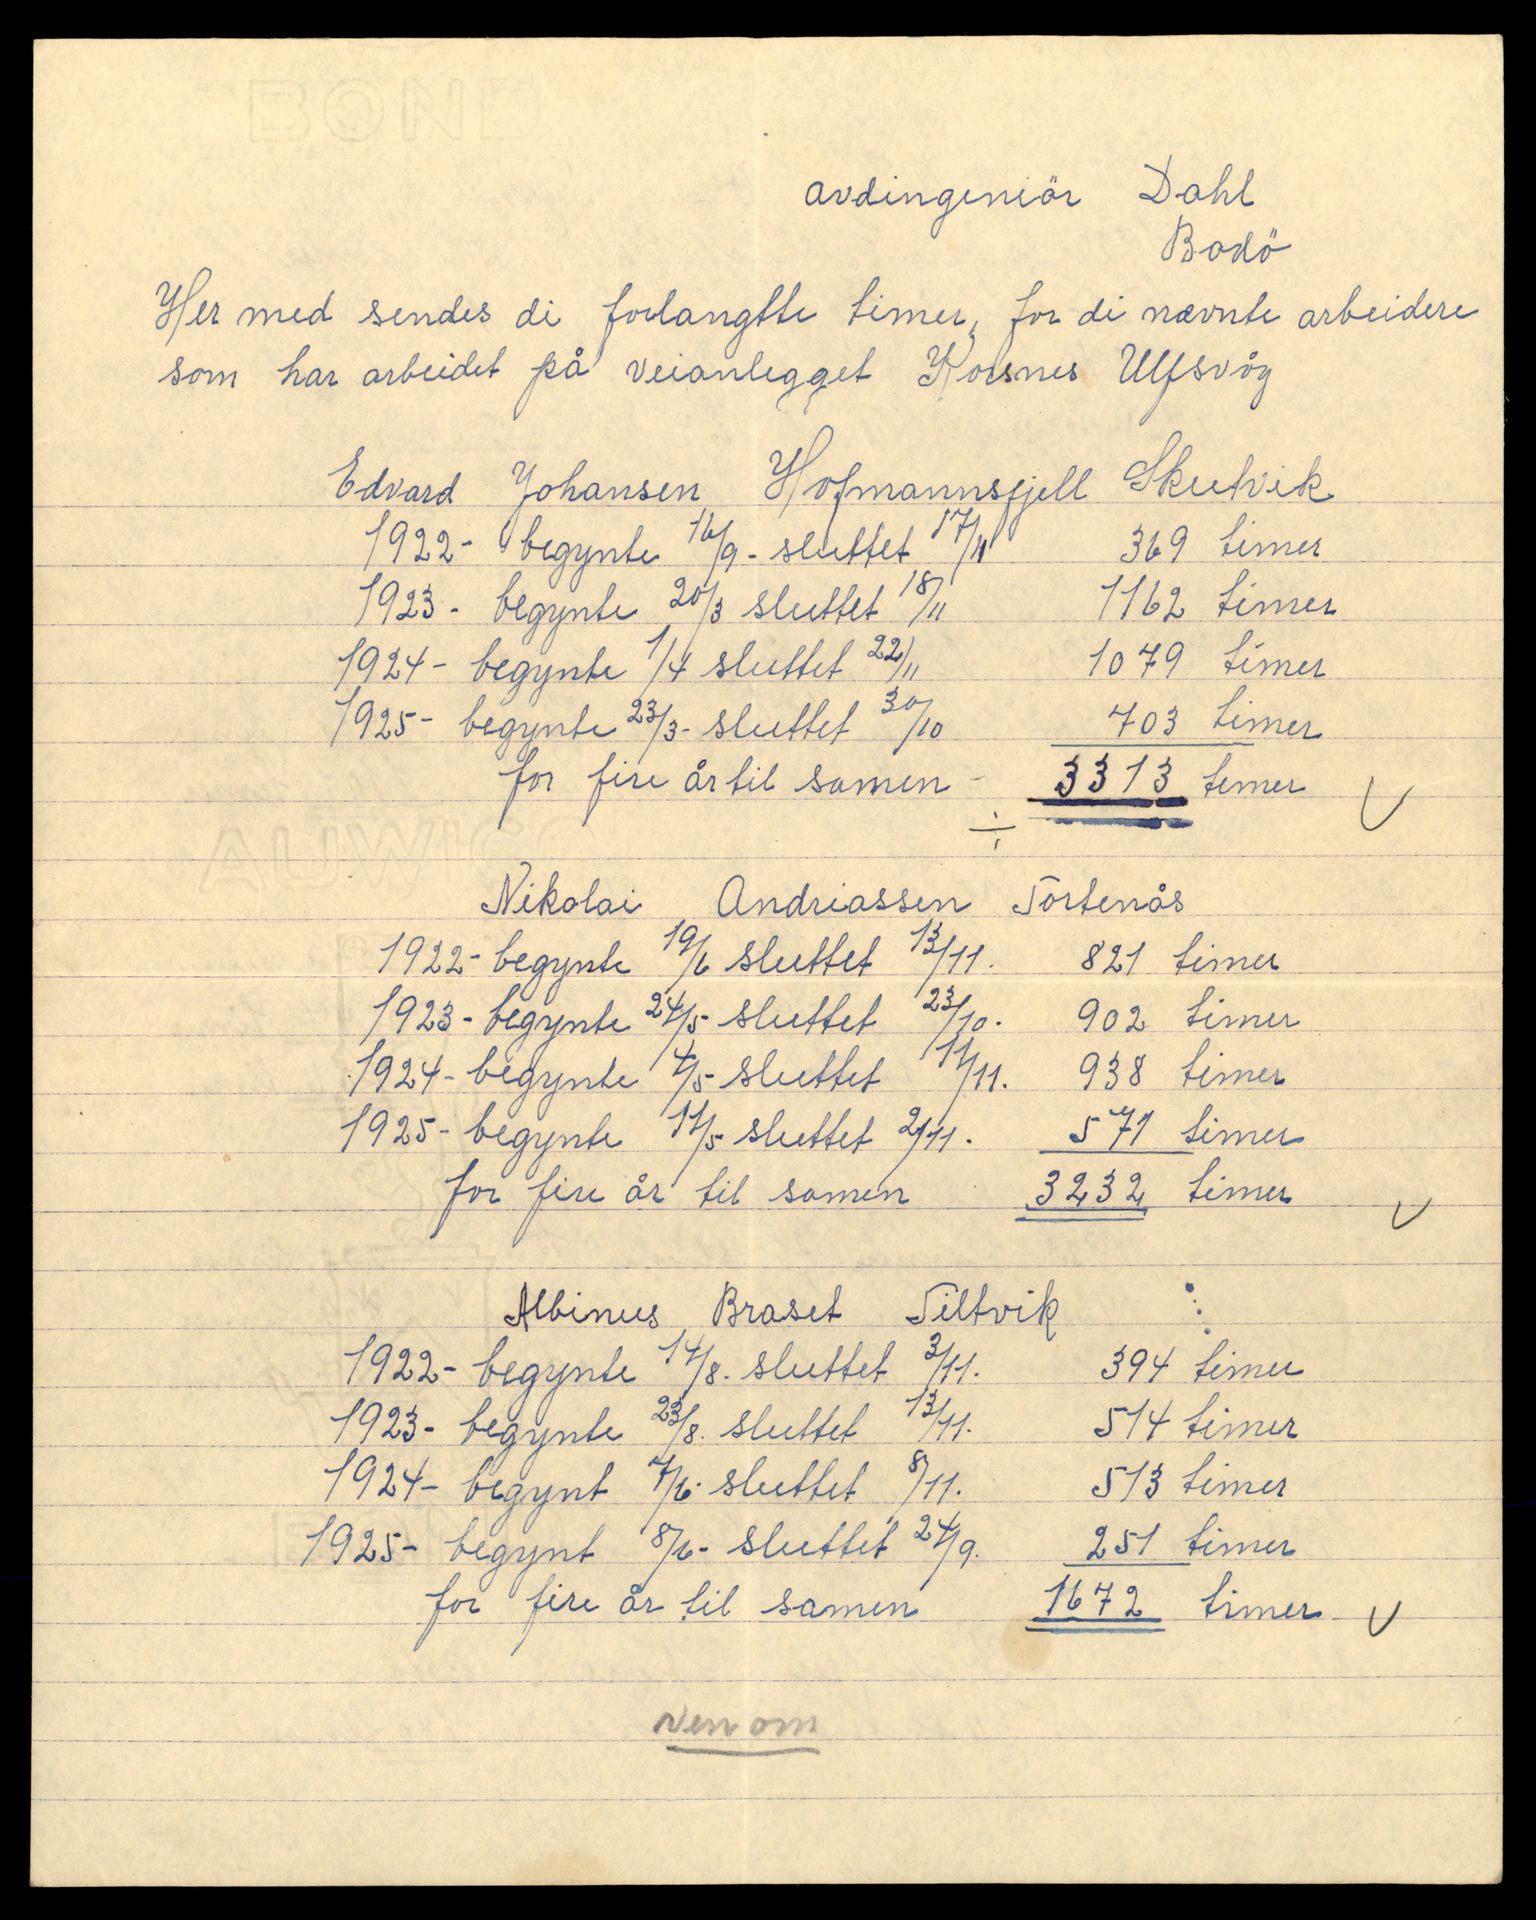 BOND
avdingeniör Dahl
Bodö
Her med sendes di forlangtte timer, for di nævnte arbeidere
som har arbeidet på veianlegget Korsnes Ulfsvåg
Edvard Johansen Hofmannsfjell Skutvik
1922- begynte 16/9- sluttet 17/11 369 timer
1923- begynte 20/3 sluttet 18/11 1162 timer
1924- begynte 1/4 sluttet 22/11 1079 timer
1925- begynte 23/3- sluttet 30/10 703 timer
for fire år til samen - 3313 timer
÷
Nikolai Andriassen Tortenås
1922- begynte 19/6 sluttet 13/11. 821 timer
1923- begynte 24/5- sluttet 23/10. 902 timer
1924- begynte 4/5- sluttet 11/11. 938 timer
1925- begynte 11/5 sluttet 2/11. 571 timer
for fire år til samen 3232 timer
Albinus Braset Tiltvik
1922- begynte 14/8. sluttet 3/11. 394 timer
1923- begynte 23/8. sluttet 13/11. 514 timer
1924- begynt 7/6. sluttet 8/11. 513 timer
1925- begynt 8/6- sluttet 24/9. 251 timer
for fire år til samen 1672 timer
ven om